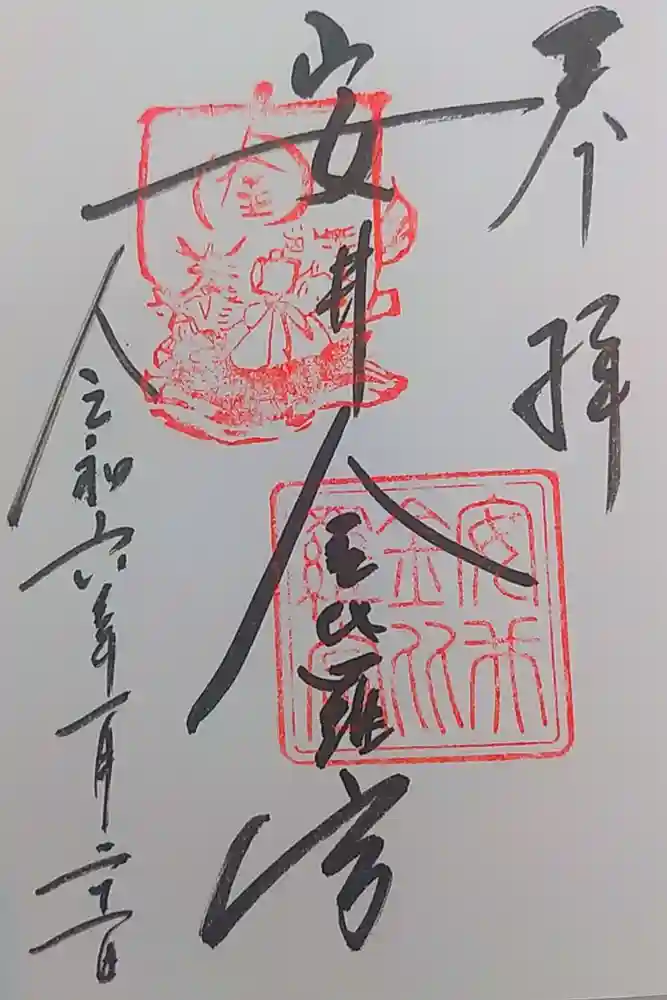 奉拝
安井金比羅宮
令和六年一月二十一日
安井
金比
羅宮
金